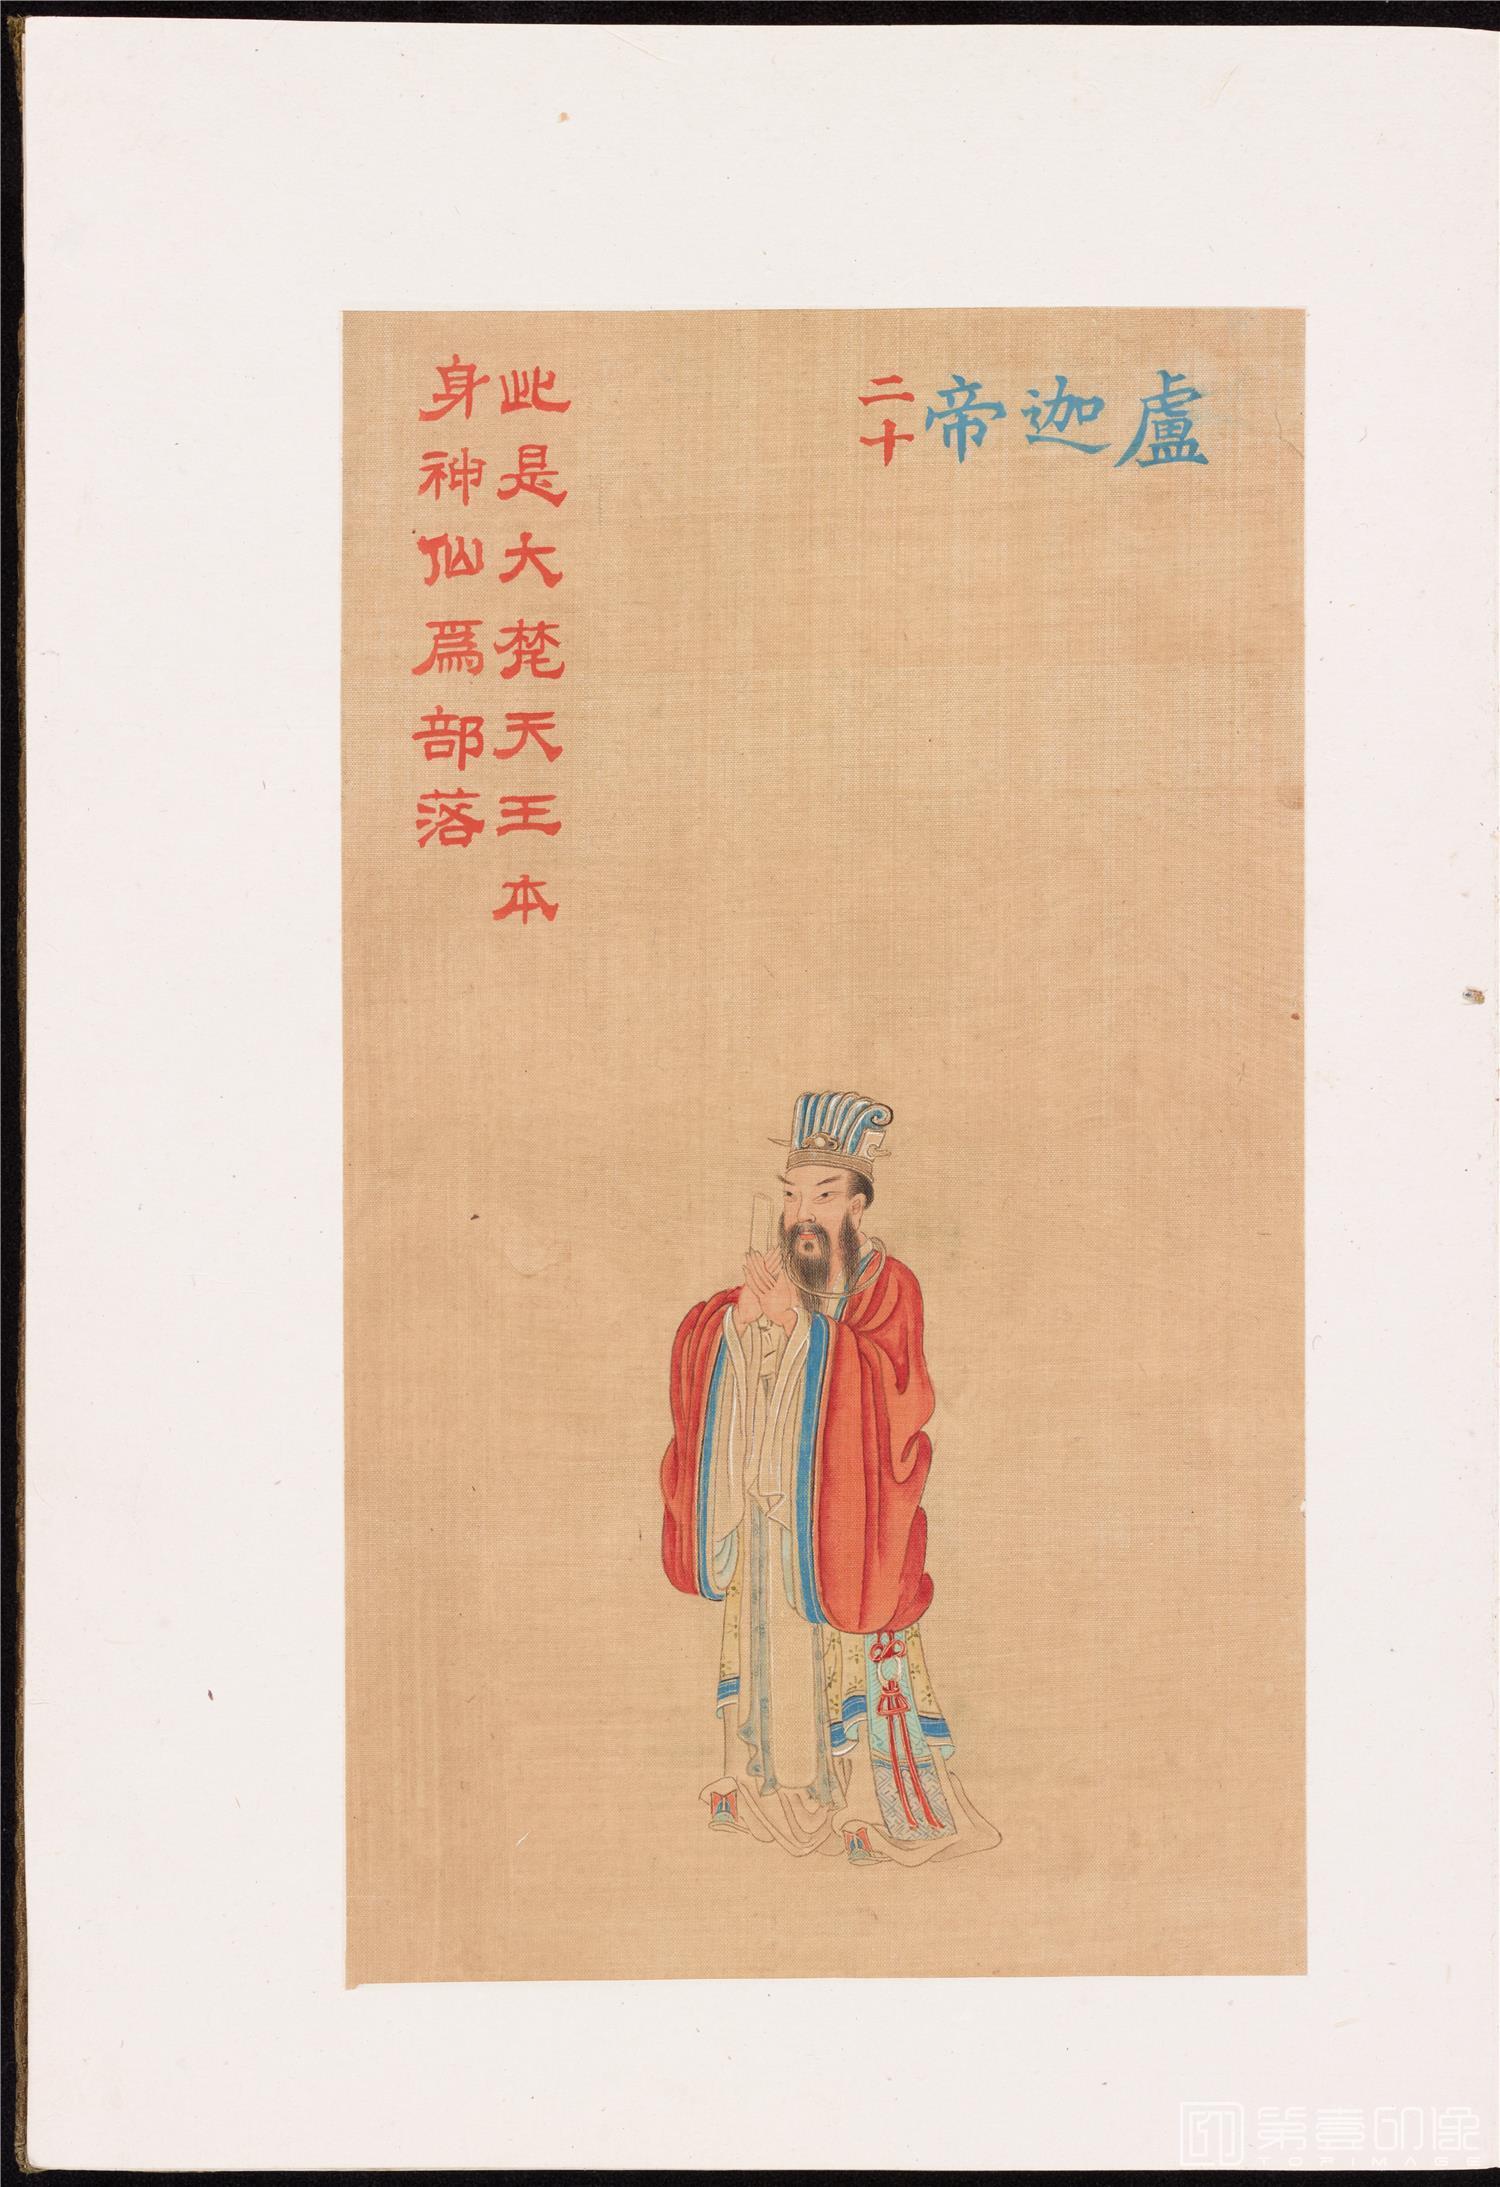 盧迦帝
二十
此是大梵天王本
身神仙爲部落
第壹印像
TOPIMAGE